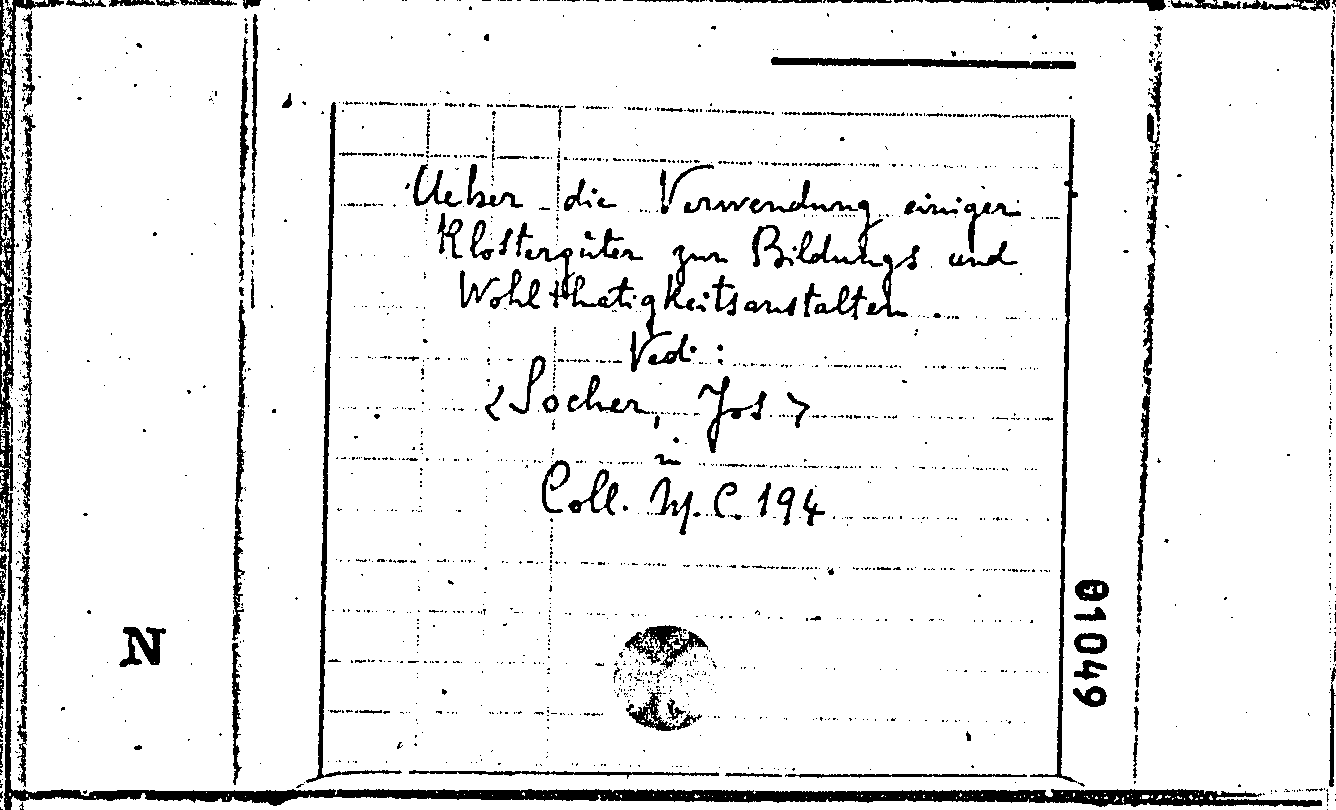 Ueber die Verwendung einiger
Klostergüter zur Bildungs und
Wohlthatigkeitsanstalten.
Vedi:
<Socher, Jos>
in
Coll. W. C. 194
N
01049